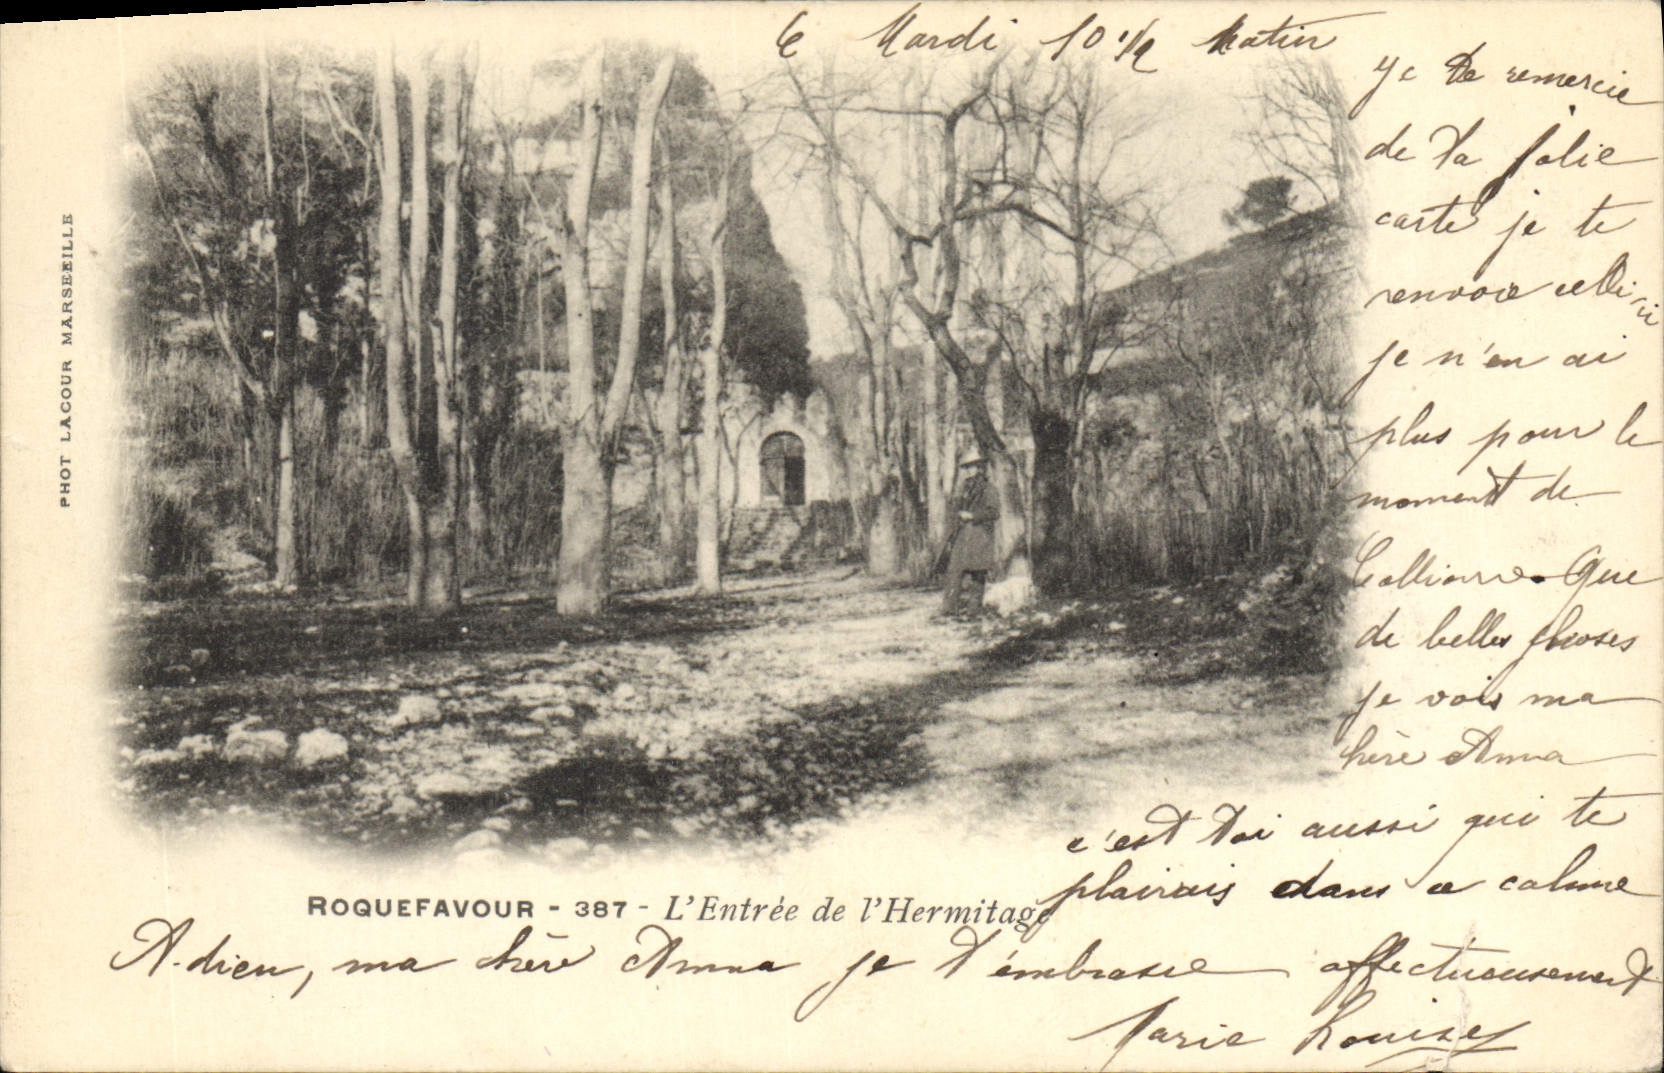 Mardi 10 1/2 Matin
Je te remercie
de ta jolie
carte je te
renvoie celle ci
je n'en ai
plus pour le
moment de
Collioure. Que
de belles choses
je vois ma
chère Anna
c'est toi aussi qui te
plairais dans ce calme
Adieu, ma chère Anna je t'embrasse affectueusement
Marie Louise
ROQUEFAVOUR - 387 - L'Entrée de l'Hermitage
PHOT LACOUR MARSEILLE